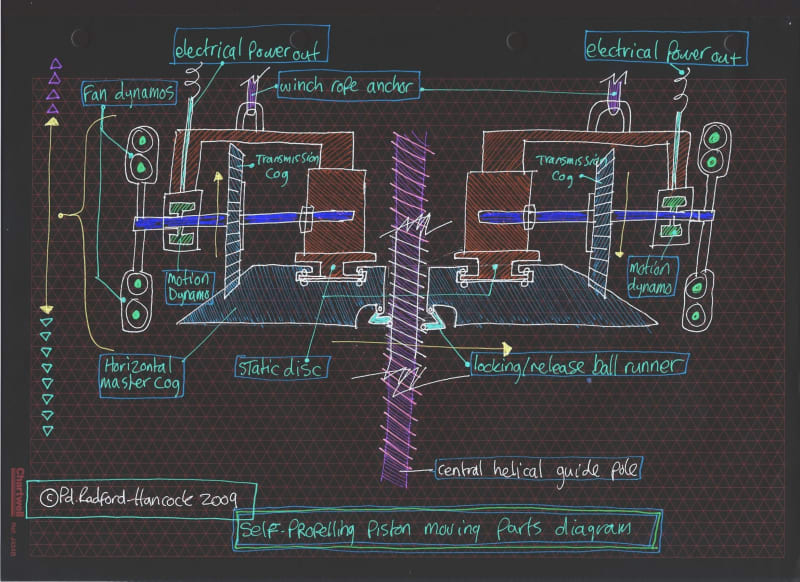 electrical power out
electrical power out
Fan dynamos
winch rope anchor
Transmission
cog
Transmission
cog
motion
Dynamo
motion
dynamo
Horizontal
master cog
static disc
locking/release ball runner
central helical guide pole
©Pd.Radford-Hancock 2009
Self-Propelling Piston moving parts diagram
Chartwell